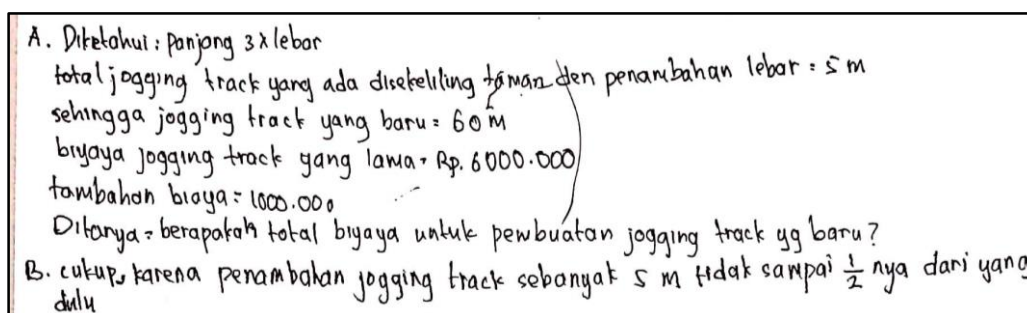 A. Diketahui : panjang 3 x lebar
total jogging track yang ada disekeliling taman den penambahan lebar = 5 m
sehingga jogging track yang baru = 60 m
biyaya jogging track yang lama = Rp. 6000.000
tambahan biaya = 1000.000
Ditanya = berapakah total biyaya untuk pewbuatan jogging track yg baru?
B. cukup, karena penambahan jogging track sebanyak 5 m tidak sampai 1/2 nya dari yang
dulu